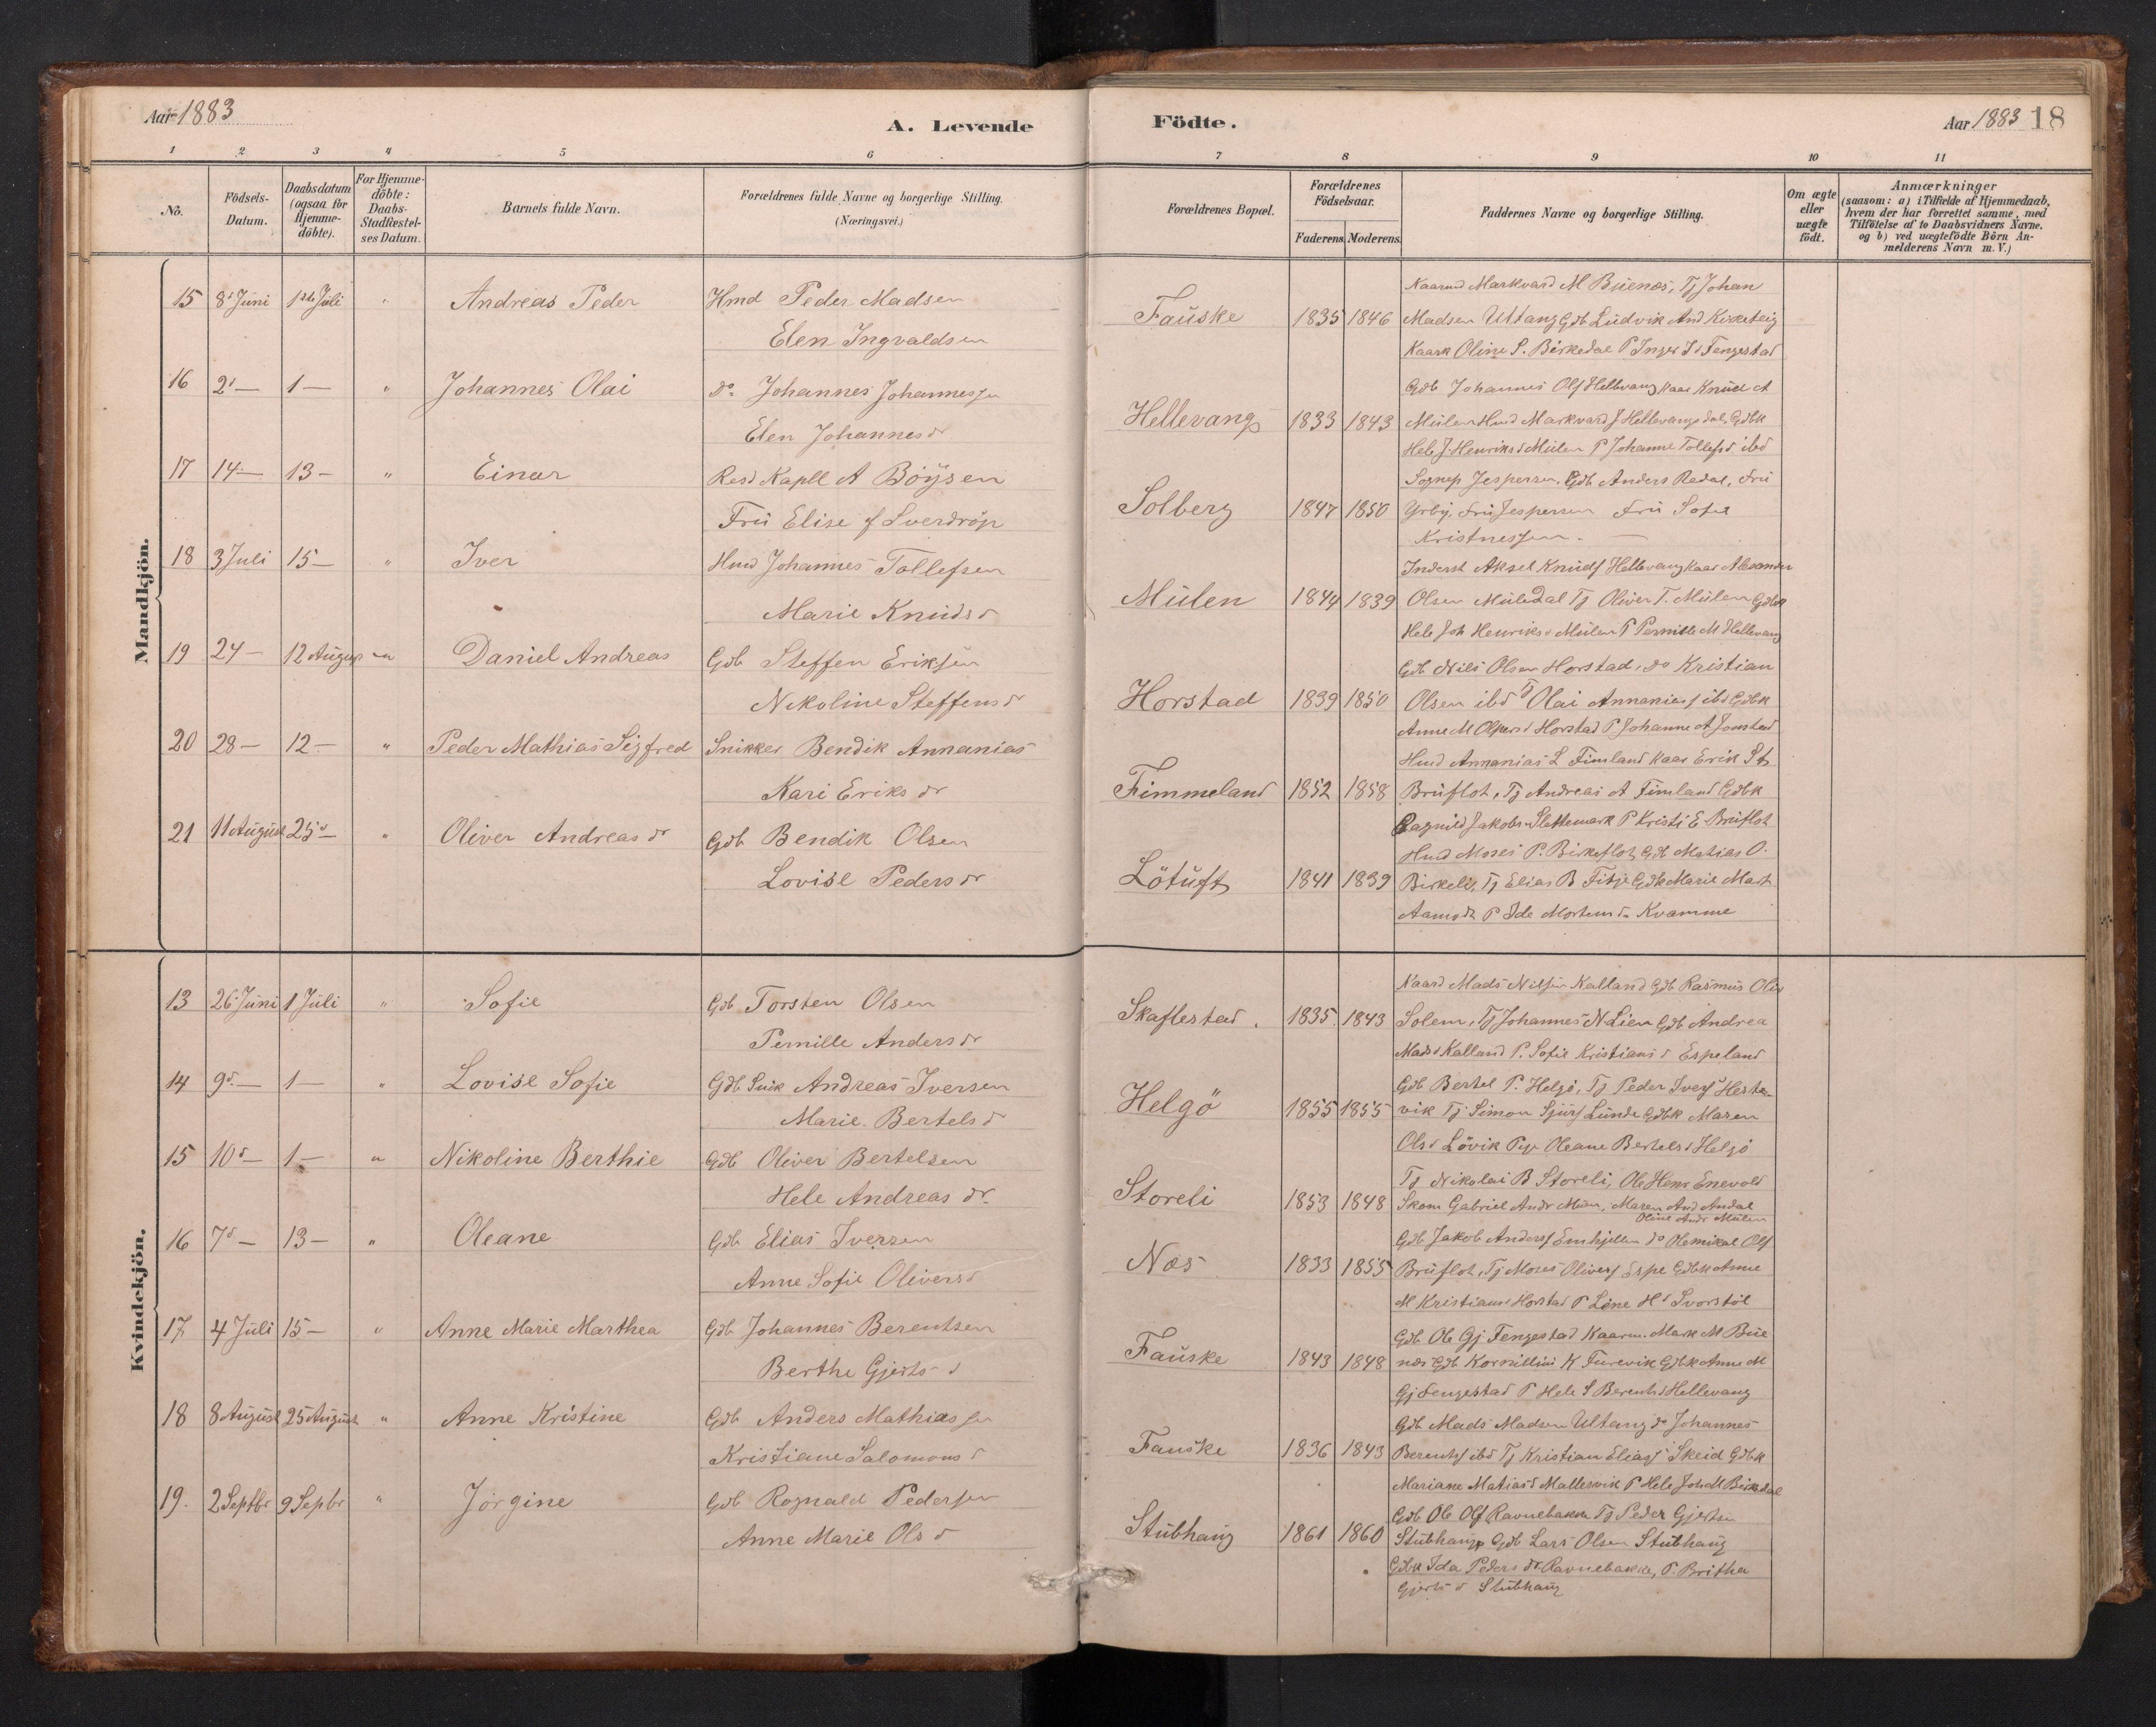 Aar 1883
A. Levende Födte.
Aar 1883 18
1 2 3 4 5 6 7 8 9 10 11
No.
Födsels-Datum.
Daabsdatum (ogsaa for Hjemme-döbte).
For Hjemme-döbte: Daabs-Stadfæstel-ses Datum.
Barnets fulde Navn.
Forældrenes fulde Navne og borgerlige Stilling. (Næringsvei.)
Forældrenes Bopæl.
Forældrenes Födselsaar.
Faderens. Moderens.
Faddernes Navne og borgerlige Stilling.
Om ægte eller uægte födt.
Anmærkninger (saasom: a) i Tilfælde af Hjemmedaab, hvem der har forrettet samme, med Tilföielse af to Daabsvidners Navne, og b) ved uægtefödte Börn An-melderens Navn m. V.)
Mandkjön.
15 8d Juni 1ste Juli " Andreas Peder Hmd Peder Madsen
Elen Ingvaldsen
Fauske 1835 1846
Markvard M Buenæs, Tj Johan
Madsen Ultang Gdb Ludvik And Kirketeig
Kaark Oline S. Birkedal P Inger J d Fengestad
16 2d — 1 — " Johannes Olai do Johannes Johannessen
Elen Johannesdr
Hellevang 1833 1843
Gdb Johannes Ols Hellevang Kaar Knud A
Mulen Hmd Markvard J Hellevangsdal, Gdbk
Hele J Henriksd Mulen P Johanne Tollefsd ibd
17 14 — 13 — " Einar Resd Kapll A Böysen
Fru Elise f Sverdrup
Solberg 1847 1850
Sognep Jespersen, Gdb Anders Redal, Fru
Fru Jespersen Fru Sofie
Kristnessen. —
18 3 Juli 15 — " Iver Hmd Johannes Tollefsen
Marie Knudsd
Mulen 1844 1839
Inderst Aksel Knuds Hellevang Kaar Alexander
Olsen Muledal Tj Oliver T. Mulen Gdbk
Hele Joh Henriksd Mulen P Pernille M Hellevang
19 24 — 12 August " Daniel Andreas Gdb Steffen Eriksen
Nikoline Steffensd
Horstad 1839 1850
Gdb Nils Olsen Horstad, do Kristian
Olsen ibd Tj Olai Annanias ibd Gdbk
Anne M Horstad P Johanne A
20 28 — 12 — " Peder Mathias Sigfred Snikker Bendik Annanias
Kari Eriksdr
Fimmeland 1852 1858
Hmd Annanias L Fimland Kaar Erik St
Bruflot, Tj Andreas A Fimland Gdbk
Ragnild Jakobs Slettemark P Kristi E Bruflot
21 11 August 25d — " Oliver Andreas dr Gdb Bendik Olsen
Lovise Pedersdr
Lötuft 1841 1839
Hmd Moses P. Birkeflot, Gdb Matias O.
Birkeli, Tj Elias B Fitje Gdbk Marie Mart
Aamodt P Ide Mortensd Kvamme
Kvindekjön.
13 26 Juni 1 Juli " Sofie Gdb Torsten Olsen
Pernille Andersdr
Skaflestad. 1835 1843
Mads Nilsen Kalland Gdb Rasmus Ols
Solem, Tj Johannes N Lien Gdb Andrea
Madsd Kalland P. Sofie Kristiansd Espeland
14 9d — 1 — " Lovise Sofie Gdb Snik Andreas Iversen
Marie Bertelsd
Helgö 1855 1855
Gdb Bertel P. Helgö, Tj Peder Ivers Heste-
vik Tj Simon Sjurs Lunde Gdbk Maren
Olsd Lövik Pige Oleane Bertelsd Helgö
15 10d — 1 — " Nikoline Berthie Gdb Oliver Bertelsen
Hele Andreasdr.
Storeli 1853 1848
Tj Nikolai B Storeli, Ole Henr Enevold
Skom Gabriel Andr Maren And Andal
Oline Andr Mulen
16 7d — 13 — " Oleane Gdb Elias Iversen
Anne Sofie Oliversd
Næs 1833 1855
Gdb Jakob Anders Emhjellen do Olemikal Ols
Bruflot, Tj Moses Olivers Espe Gdbk Anne
M Kristiansd Horstad P Line H d Svorstöl
17 4 Juli 15 — " Anne Marie Marthea Gdb Johannes Berentsen
Berthe Gjertsd
Fauske 1843 1848
Gdb Ole Gj Fengestad Kaarm. Mark M Bue
næs Gdb K Furevik Gdbk Anne M
Gj Fengestad P Hele S Berentsd Hellevang
18 8 August 25 August " Anne Kristine Gdb Anders Mathiassen
Kristiane Salomonsd
Fauske 1836 1843
Gdb Mads Madsen Ultang do Johannes
Berents ibd Tj Kristian Elias Skeid Gdbk
Mariane Matiasd Mallesvik P Hele Joh M Birkedal
19. 2 Septbr 9 Sepbr " Jörgine Gdb Rognald Pedersen
Anne Marie Olsd
Stubhaug 1861 1860
Gdb Ole Ols Ravnebakke Tj Peder Gjertsen
Stubhaug Gdb Lars Olsen Stubhaug
Gdbk Ida Pedersdr Ravnebakke, P. Britha
Gjertsd Stubhaug